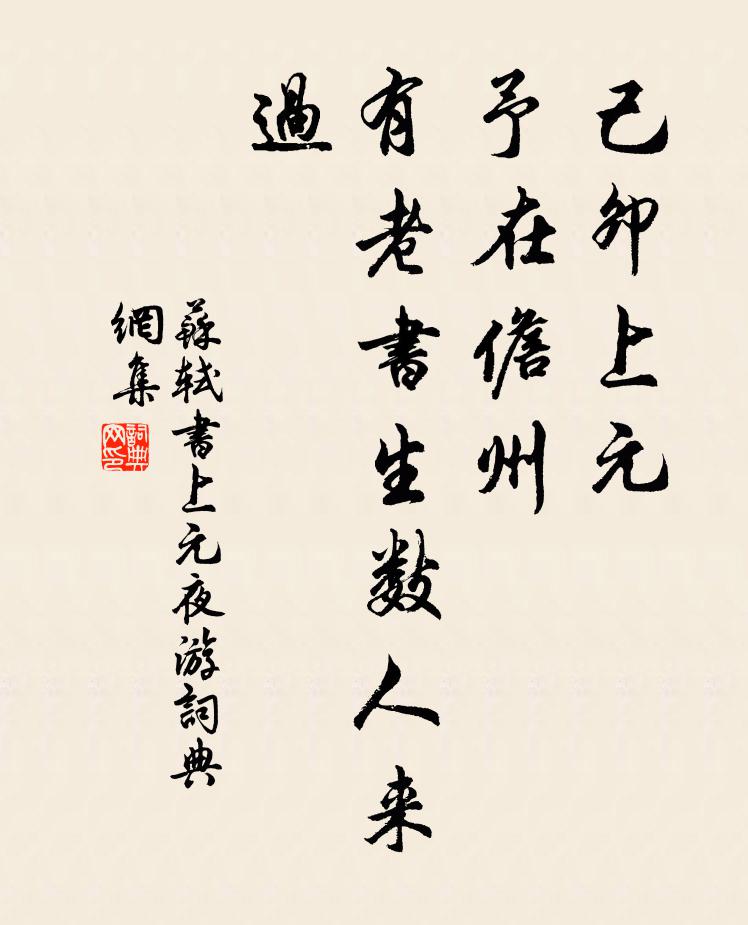 己卯上元
予在儋州
有老書生数人来
過
蘇軾書上元夜游詞典
網集
詞典
网印